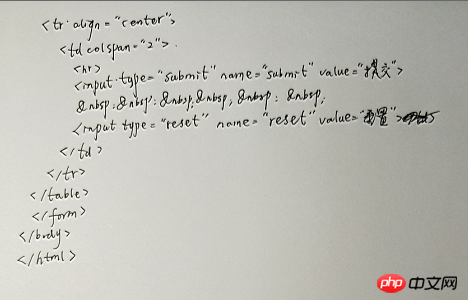 <tr align="center">
<td colspan="2">
<hr>
<input type="submit" name="submit" value="提交">
&nbsp;&nbsp;&nbsp;&nbsp;&nbsp;&nbsp;
<input type="reset" name="reset" value="重置">
</td>
</tr>
</table>
</form>
</body>
</html>
php 中文网